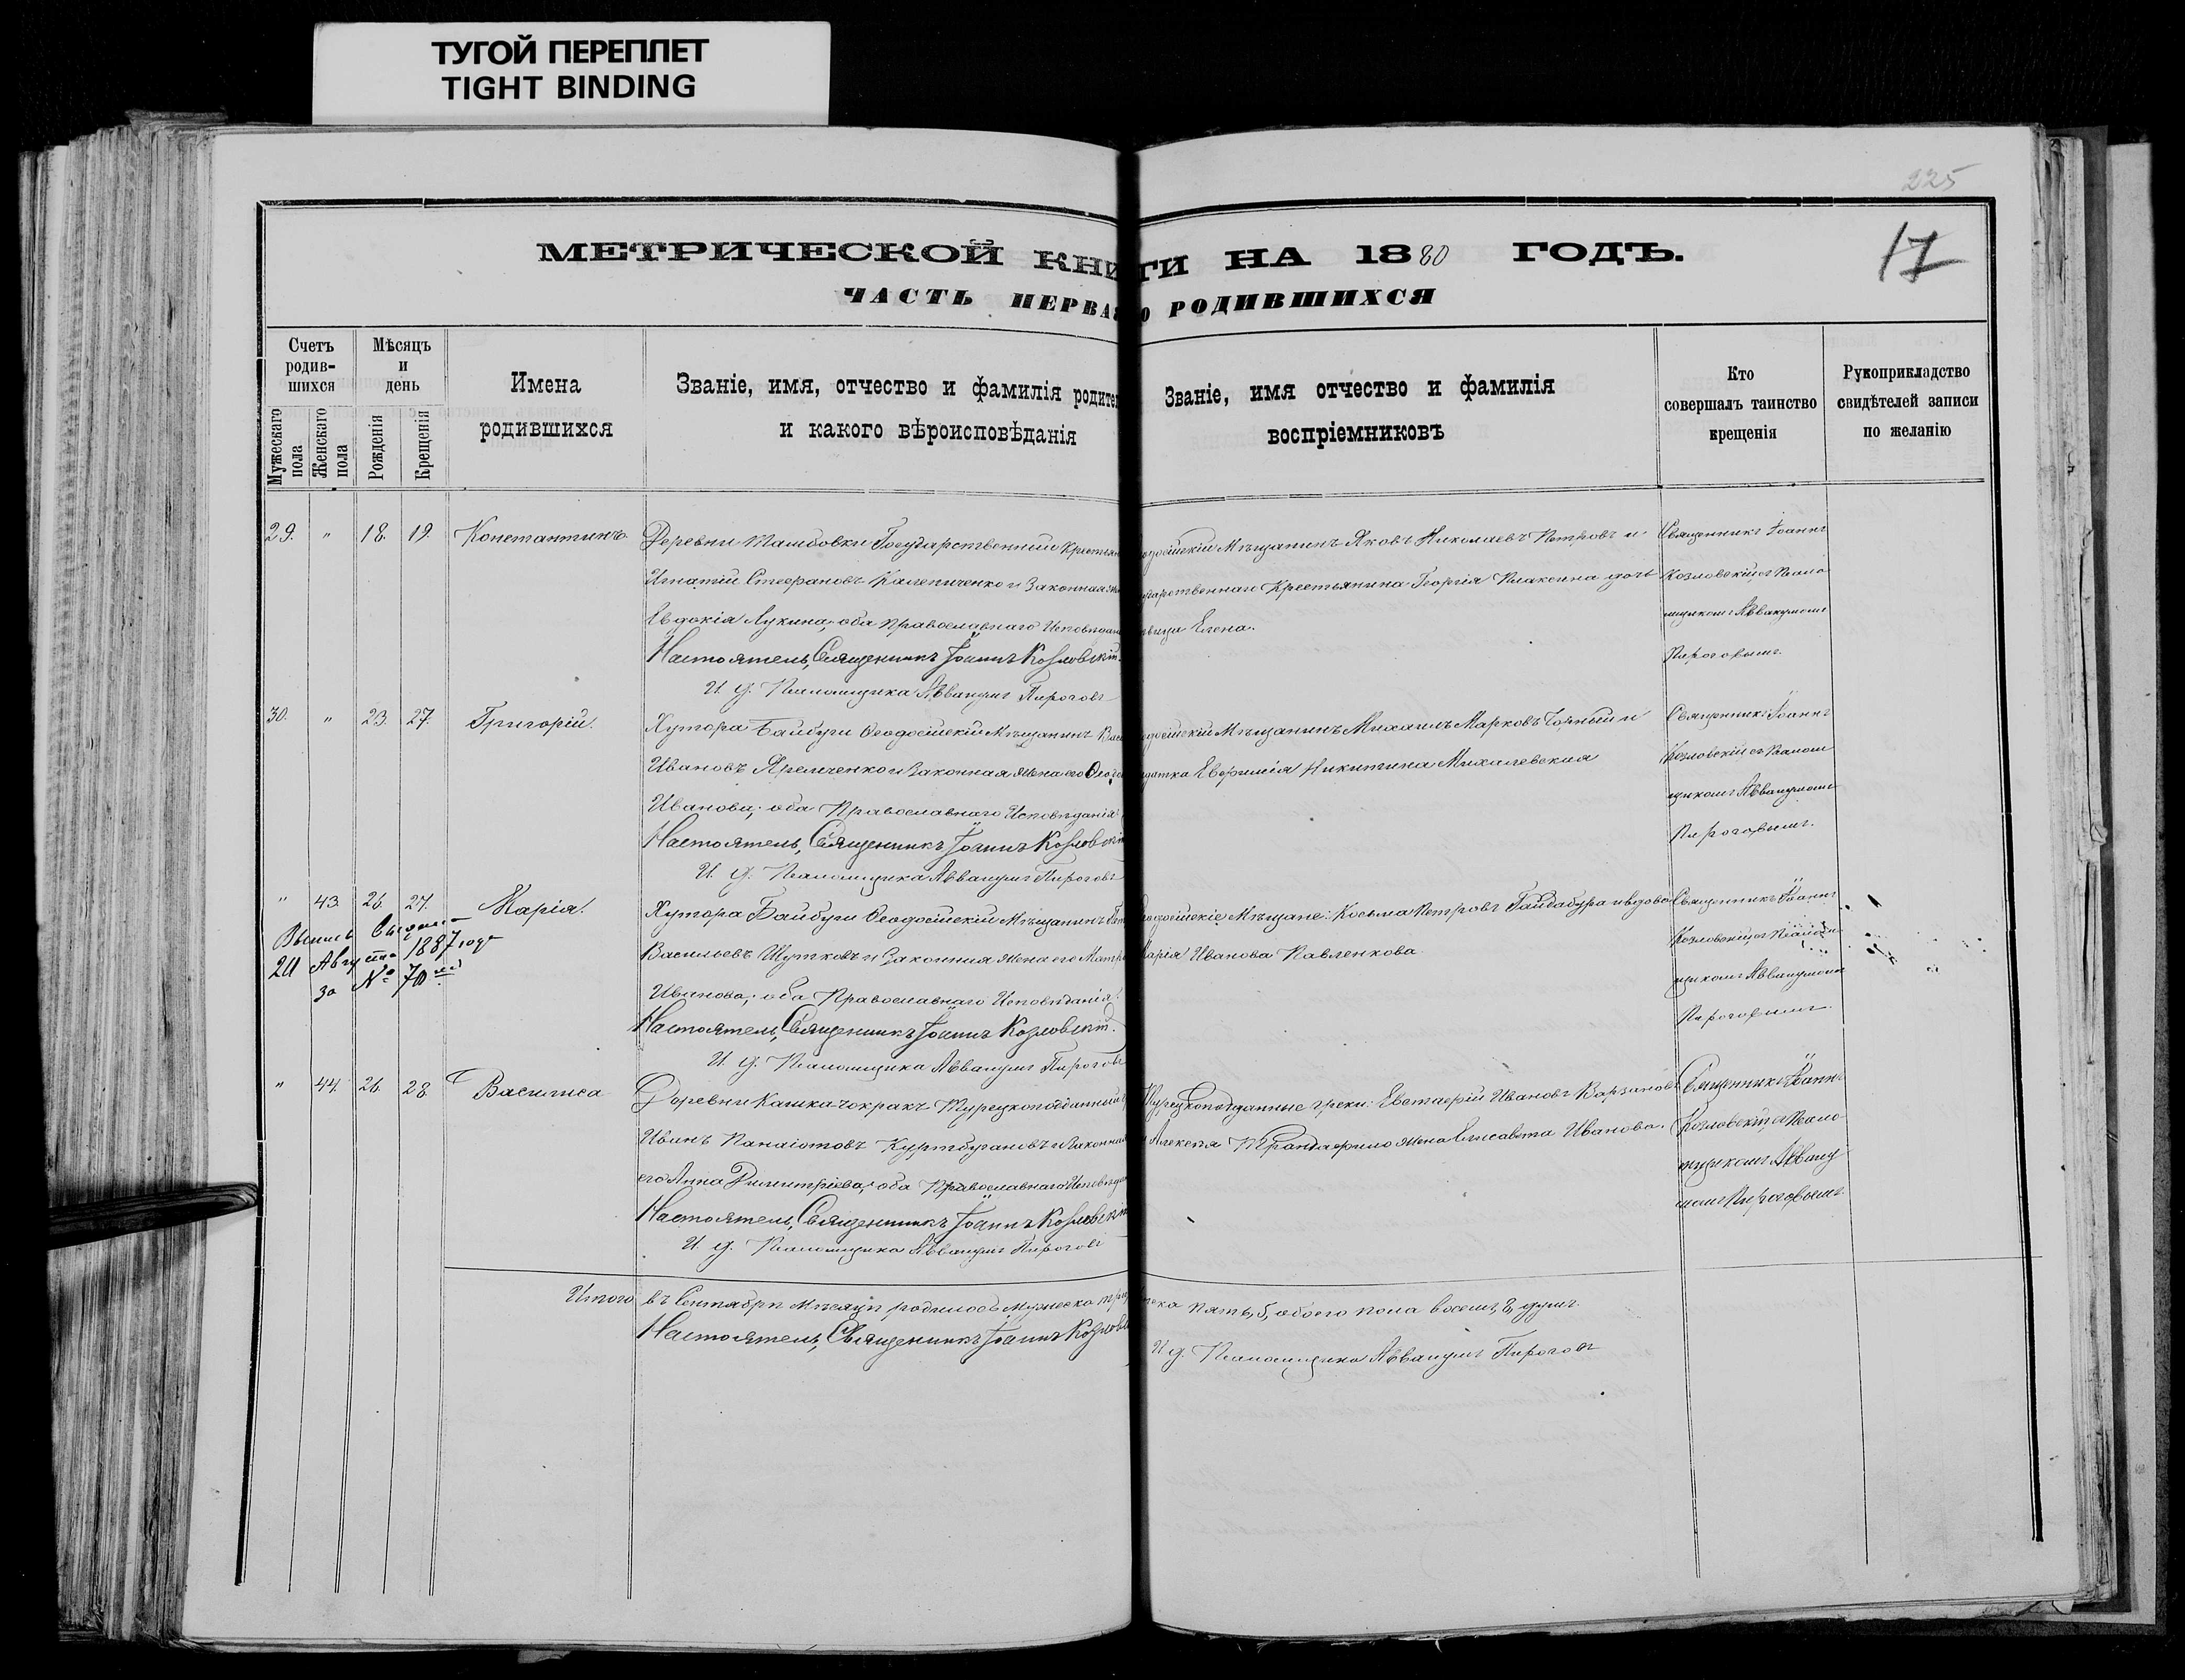 ТУГОЙ ПЕРЕПЛЕТ
TIGHT BINDING
225
17
МЕТРИЧЕСКОЙ КНИГИ НА 1880 ГОДЪ.
ЧАСТЬ ПЕРВАЯ О РОДИВШИХСЯ
Счетъ родив-шихся
Мужескаго пола
Женскаго пола
Мѣсяцъ и день
Рожденія
Крещенія
Имена родившихся
Званіе, имя, отчество и фамилія родител
и какого вѣроисповѣданія
Званіе, имя отчество и фамилія
воспріемниковъ
Кто совершалъ таинство крещенія
Рукоприкладство свидѣтелей записи по желанію
29. " 18. 19. Константинъ.
Деревни Тамбовки Государственный Крестьян
Игнатій Стефановъ и Законная
Евдокія Лукина, оба православнаго Исповѣдан
Настоятель, Священникъ Іоаннъ Козловскій.
И. д. Псаломщика Аввакумъ Пироговъ
одосійскій Мѣщанинъ Яковъ Николаевъ Петровъ и
ударственнаго Крестьянина Георгія Плаксина дочь
вица Елена.
Священникъ Іоаннъ
Козловскій съ Псало
мщикомъ Аввакумомъ
Пироговымъ.
30. " 23. 27. Григорій.
Хутора Байбуги Ѳеодосійскій Мѣщанинъ Вас
Ивановъ Яремченко и Законная жена его
Иванова, оба Православнаго Исповѣданія
Настоятель, Священникъ Іоаннъ Козловскій
И. д. Псаломщика Аввакумъ Пироговъ
одосійскій Мѣщанинъ Михаилъ Марковъ и
датка Евфимія Никитина Михалевская
Священникъ Іоаннъ
Козловскій съ Псалом
щикомъ Аввакумомъ
Пироговымъ.
" 43. 26. 27. Марія.
Выпись
20 Августа 1887 года
за № 70
Хутора Байбуги Ѳеодосійскій Мѣщанинъ
Васильевъ Шутковъ и Законная жена его Матр
Иванова, оба Православнаго Исповѣданія.
Настоятель, Священникъ Іоаннъ Козловскій.
И. д. Псаломщика Аввакумъ Пироговъ
одосійскіе Мѣщане: Косьма Петровъ Гайдабура и вдова
Марія Иванова Павленкова
Священникъ Іоаннъ
Козловскій съ Псалом
щикомъ Аввакумомъ
Пироговымъ.
" 44. 26. 28. Василиса
Деревни Кашка-чокракъ Турецкоподданный
Иванъ Панаіотовъ Куртбугановъ и Законная
его Анна Димитріева, оба Православнаго Исповѣдан
Настоятель, Священникъ Іоаннъ Козловскій
И. д. Псаломщика Аввакумъ Пироговъ
Турецкоподданные греки: Евстафій Ивановъ
и Алексѣя Трандафило жена Елисавета Иванова.
Священникъ Іоаннъ
Козловскій съ Псало
мщикомъ Авваку
момъ Пироговымъ.
Итого въ Сентябрѣ Мѣсяцѣ родилось Мужеска
женска пять, 5, обоего пола восемь, 8, душъ.
Настоятель, Священникъ Іоаннъ Козловс
И д. Псаломщика Аввакумъ Пироговъ